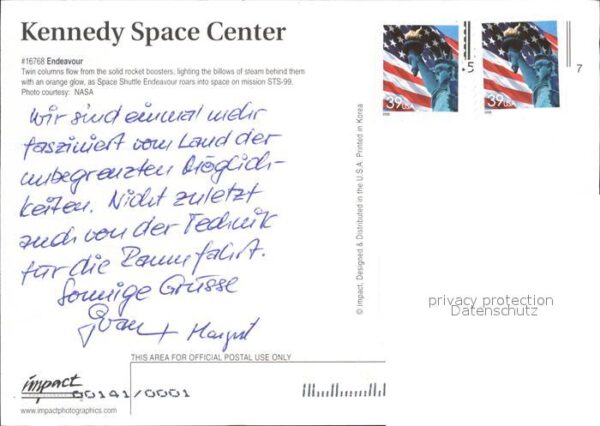 Kennedy Space Center
#16768 Endeavour
Twin columns flow from the solid rocket boosters, lighting the billows of steam behind them
with an orange glow, as Space Shuttle Endeavour roars into space on mission STS-99.
Photo courtesy: NASA
Wir sind einmal mehr
fasziniert vom Land der
unbegrenzten Möglich-
keiten. Nicht zuletzt
auch von der Technik
für die Raumfahrt.
Sonnige Grüsse
+ Margrit
THIS AREA FOR OFFICIAL POSTAL USE ONLY
impact
00141/0001
www.impactphotographics.com
© impact, Designed & Distributed in the U.S.A. Printed in Korea
39 USA
39 USA
5
7
privacy protection
Datenschutz